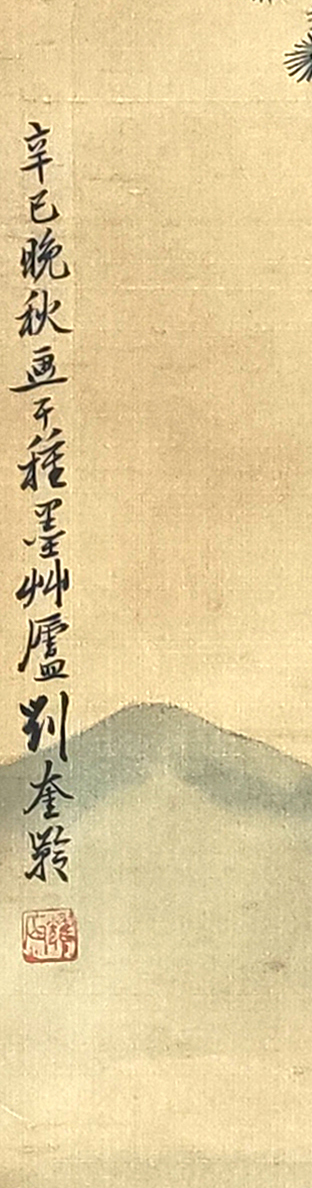 辛巳晚秋画于種墨艸廬劉奎齡